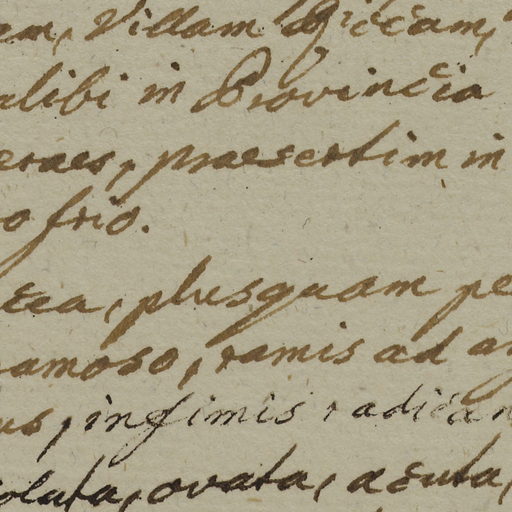 em, Villam Ricćam,
alibi in Provincia
eraes, praesertim in
o frio.
cea, plusquam pe
amoso, ramis ad an
us, infimis radican
olata, ovata, acuta,